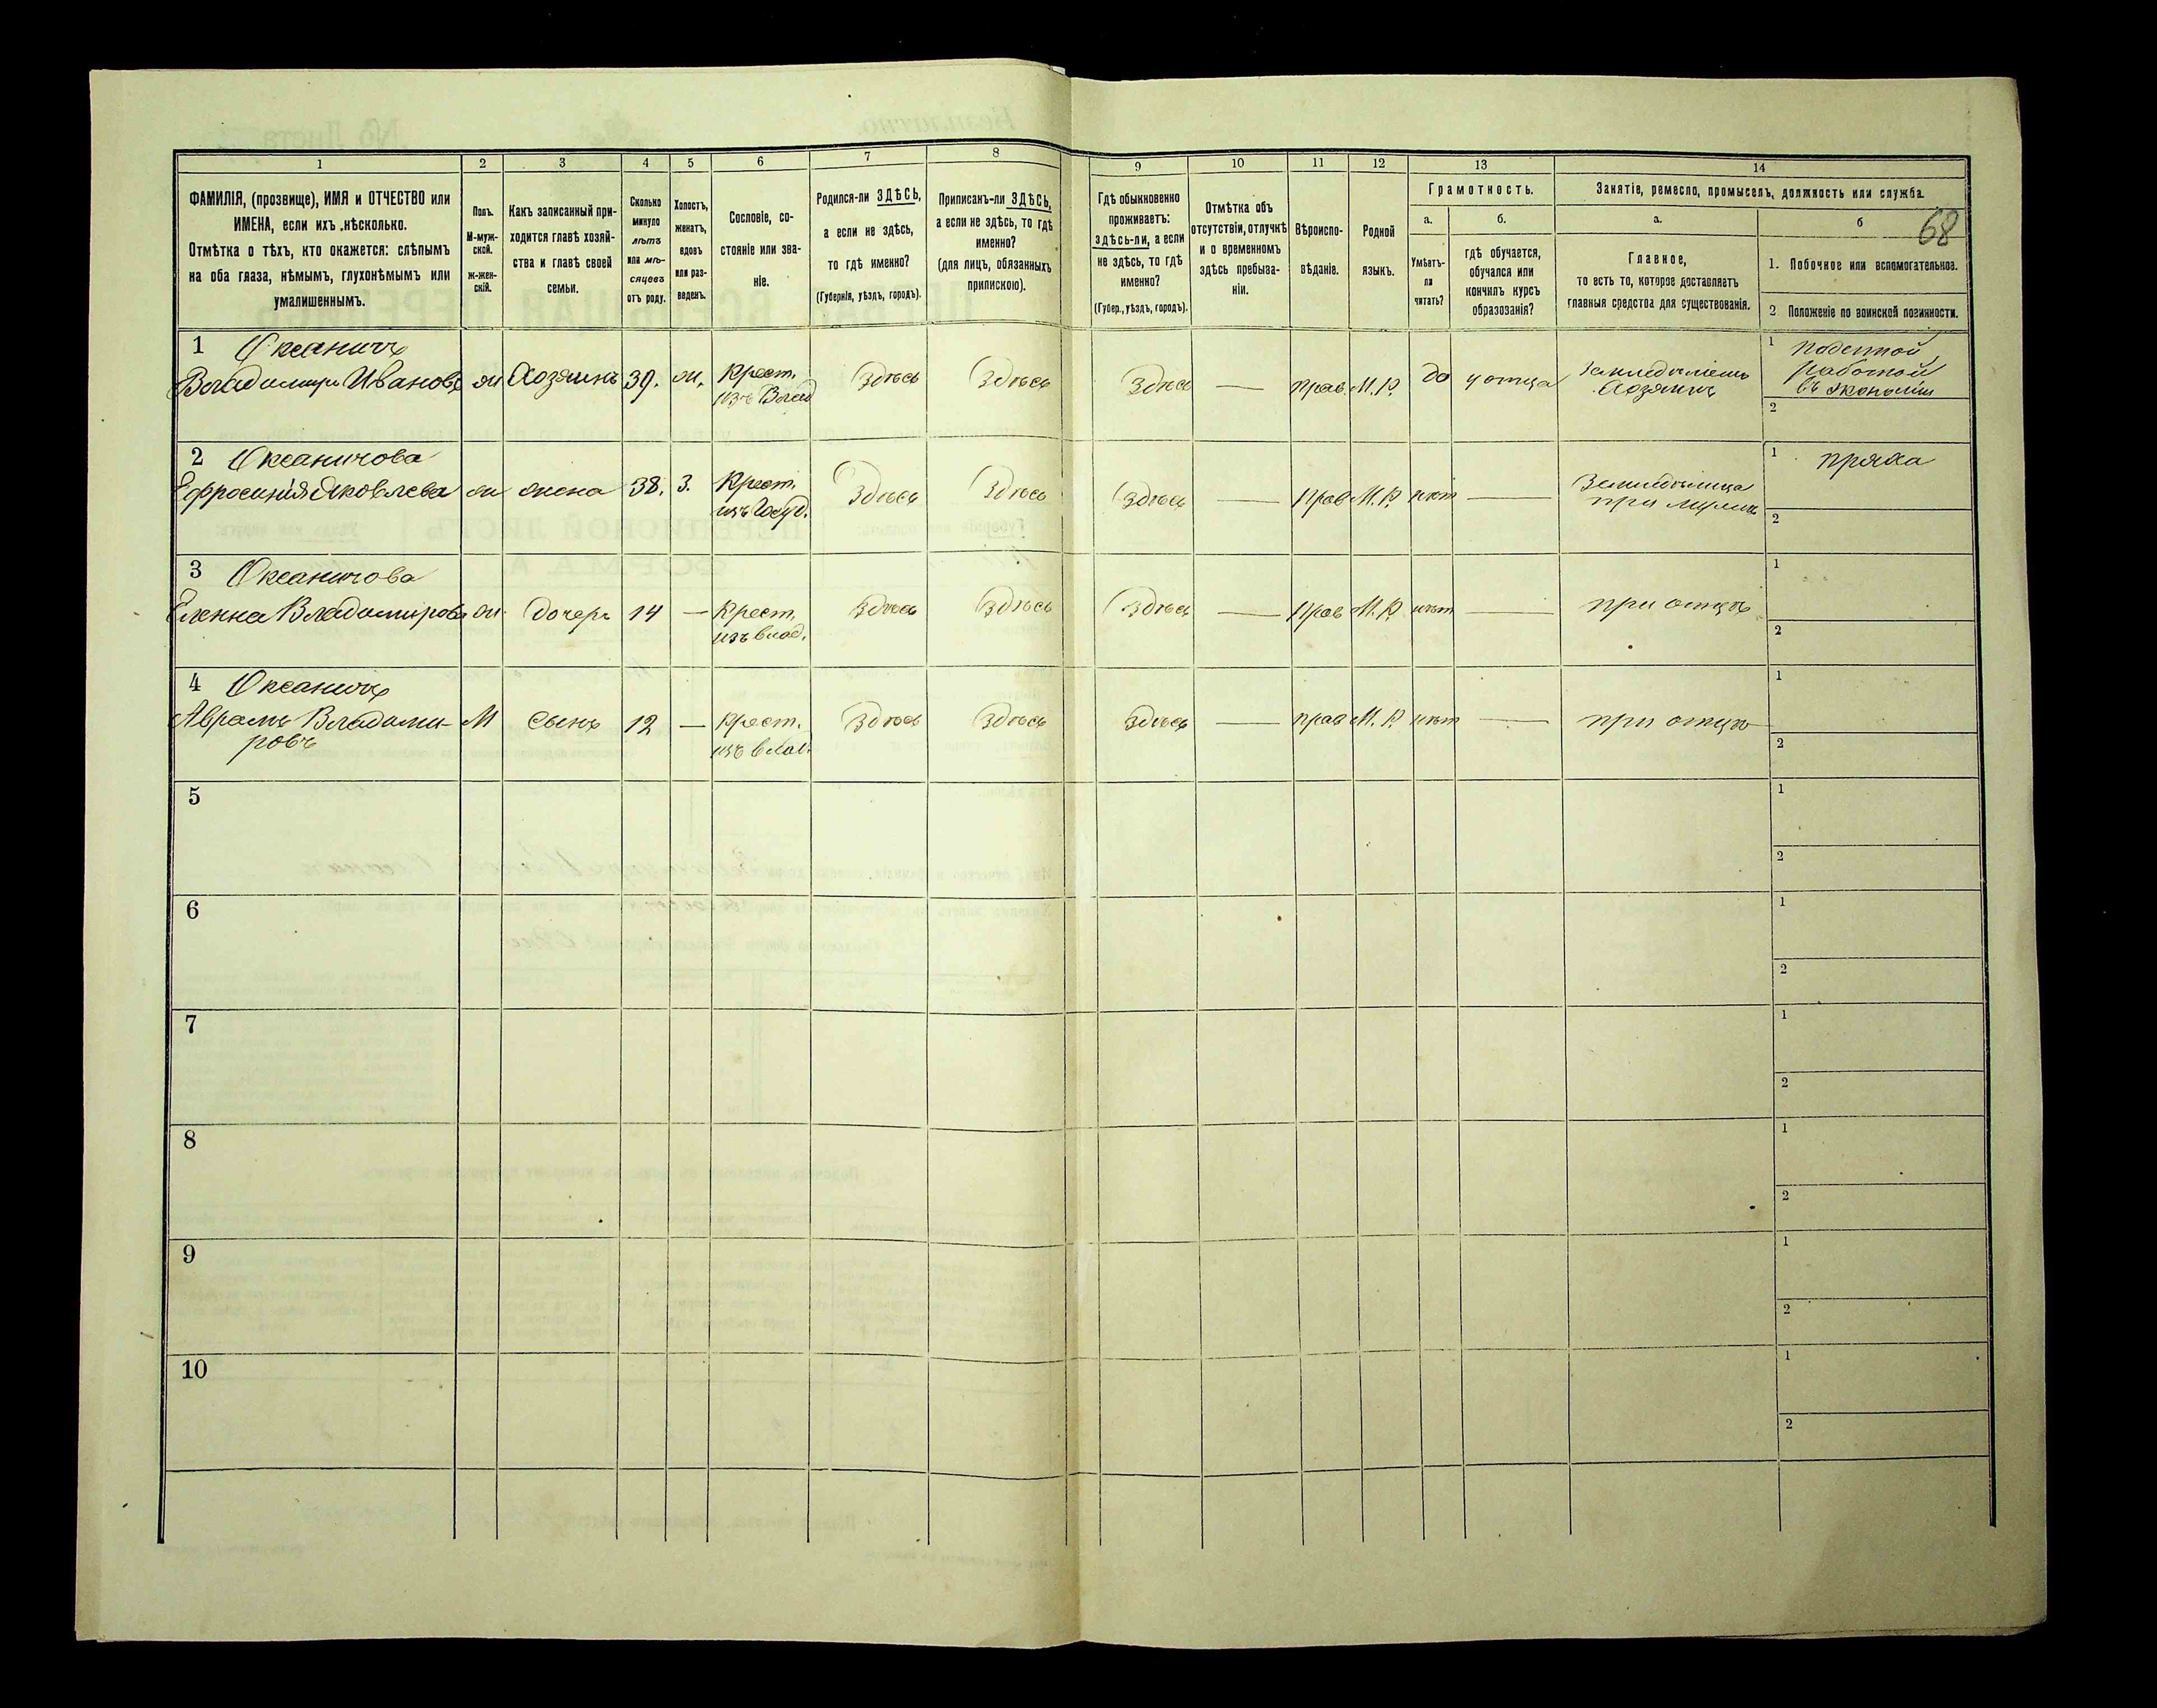 1 2 3 4 5 6 7 8 9 10 11 12 13 14
ФАМИЛІЯ, (прозвище), ИМЯ и ОТЧЕСТВО или
ИМЕНА, если ихъ нѣсколько.
Отмѣтка о тѣхъ, кто окажется: слѣпымъ
на оба глаза, нѣмымъ, глухонѣмымъ или
умалишеннымъ.
Полъ.
М-муж-
ской.
ж-жен-
скій.
Какъ записанный при-
ходится главѣ хозяй-
ства и главѣ своей
семьи.
Сколько
минуло
лѣтъ
или мѣ-
сяцевъ
отъ роду.
Холостъ,
женатъ,
вдовъ
или раз-
веденъ.
Сословіе, со-
стояніе или зва-
ніе.
Родился-ли ЗДѢСЬ,
а если не здѣсь,
то гдѣ именно?
(Губернія, уѣздъ, городъ).
Приписанъ-ли ЗДѢСЬ,
а если не здѣсь, то гдѣ
именно?
(для лицъ, обязанныхъ
припискою).
Гдѣ обыкновенно
проживаетъ:
здѣсь-ли, а если
не здѣсь, то гдѣ
именно?
(Губер., уѣздъ, городъ).
Отмѣтка объ
отсутствіи, отлучкѣ
и о временномъ
здѣсь пребыва-
ніи.
Вѣроиспо-
вѣданіе.
Родной
языкъ.
Грамотность.
а.
Умѣетъ-
ли
читать?
б.
гдѣ обучается,
обучался или
кончилъ курсъ
образованія?
Занятіе, ремесло, промыселъ, должность или служба.
а.
Главное,
то есть то, которое доставляетъ
главныя средства для существованія.
б
68
1. Побочное или вспомогательное.
2 Положеніе по воинской повинности.
1
Владимиръ Ивановъ м Хозяинъ 39. ж. Крест. Здѣсь Здѣсь Здѣсь — прав. М.Р. да у отца
изъ Влад
Хозяинъ
1 Поденной
работой
въ экономіи
2
2
Ефросинія Яковлева ж жена 38. З. Крест. Здѣсь Здѣсь Здѣсь — Прав М.Р. нѣт —
изъ Госуд.
при мужѣ
1 пряха
2
3
Еленна Владимирова ж. дочерь 14 — Крест. Здѣсь Здѣсь Здѣсь — Прав М.Р. нѣт — при отцѣ
изъ влад.
1
2
4
Аврамъ Владими- М сынъ 12 — Крест. Здѣсь Здѣсь Здѣсь — прав М.Р. нѣт — при отцѣ
ровъ изъ влад.
1
2
5
1
2
6
1
2
7
1
2
8
1
2
9
1
2
10
1
2